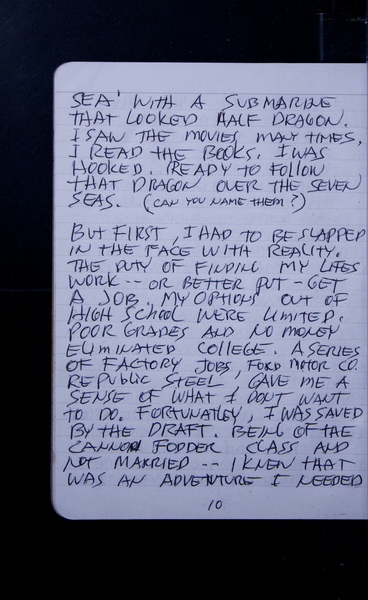 SEA' WITH A SUBMARINE
THAT LOOKED HALF DRAGON.
I SAW THE MOVIES MANY TIMES,
I READ THE BOOKS. I WAS
HOOKED. READY TO FOLLOW
THAT DRAGON OVER THE SEVEN
SEAS. (CAN YOU NAME THEM?)
BUT FIRST, I HAD TO BE SLAPPED
IN THE FACE WITH REALITY.
THE DUTY OF FINDING MY LIFES
WORK -- OR BETTER PUT - GET
A JOB. MY OPTIONS OUT OF
HIGH SCHOOL WERE LIMITED.
POOR GRADES AND NO MONEY
ELIMINATED COLLEGE. A SERIES
OF FACTORY JOBS, FORD MOTOR CO.
REPUBLIC STEEL, GAVE ME A
SENSE OF WHAT I DONT WANT
TO DO. FORTUNATLEY, I WAS SAVED
BY THE DRAFT. BEING OF THE
CANNON FODDER CLASS AND
NOT MARRIED -- I KNEW THAT
WAS AN ADVENTURE I NEEDED
10